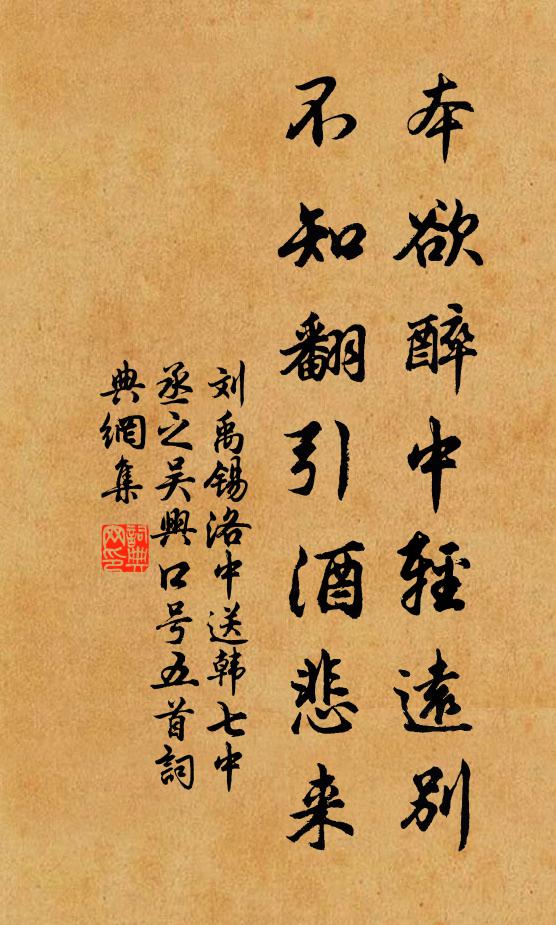 本欲醉中輕遠别
不知翻引酒悲来
刘禹锡洛中送韩七中
丞之吴興口号五首詞
典網集
詞典
网印